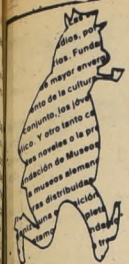 dios, por
ios. Funda
mayor enver
ento de la cultur
conjunto, los jóve
lico. Y otro tanto ca
es noveles o la pr
dación de Museos
museos aleman
ras distribuida
una
bición